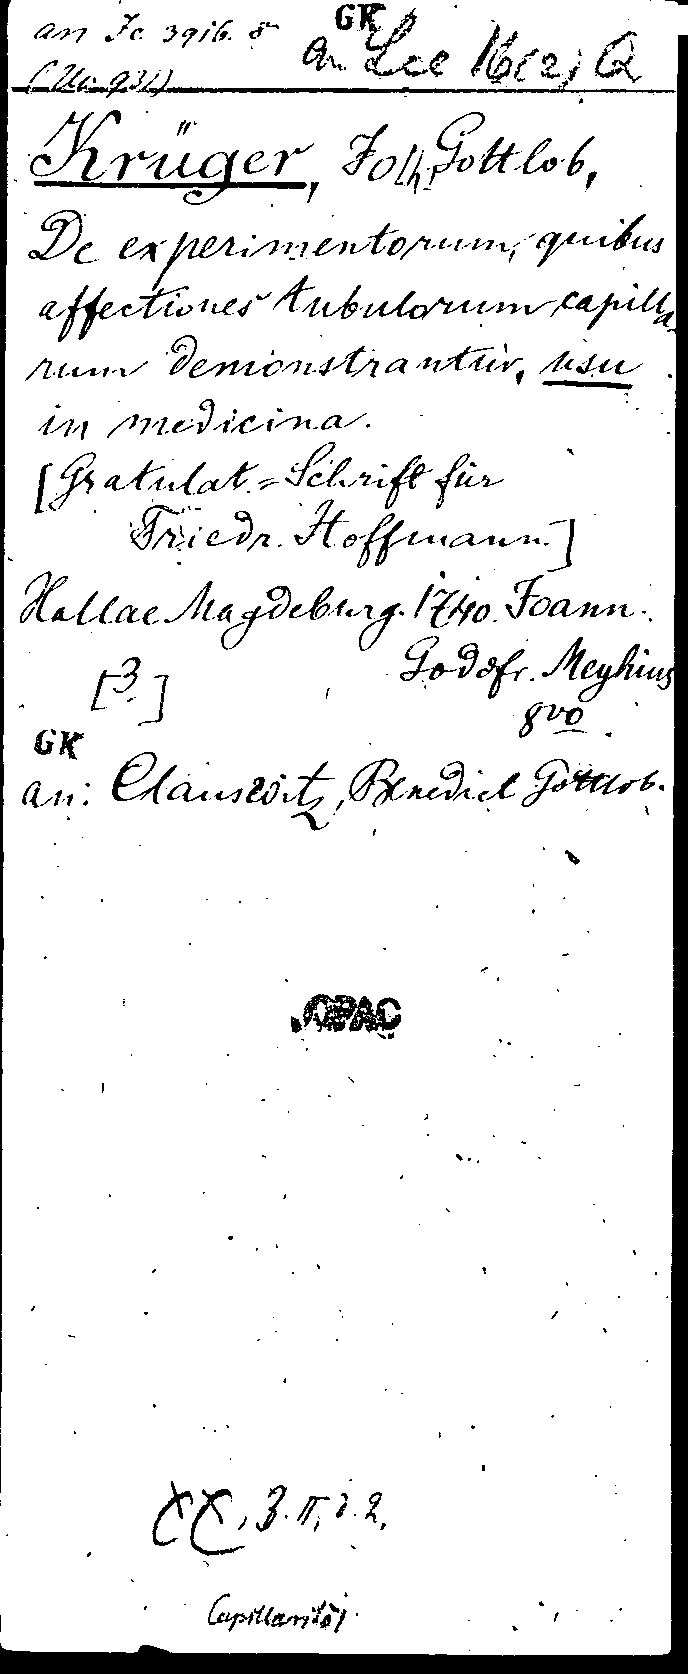 an Jc 3916. 8
GK
an Lce 16(2) Q
(Un 931)
Krüger, Joh. Gottlob,
De experimentorum, quibus
affectiones tubulorum capilla
rum demonstrantur, usu
in medicina.
[Gratulat.-Schrift für
Friedr. Hoffmann.]
Hallae Magdeburg. 1740. Joann.
Godofr. Meyhius
[3.]
8vo
GK
an: Clauswitz, Benedict Gottlob.
OPAC
XX, 3. II, 2. 2.
Capillarität